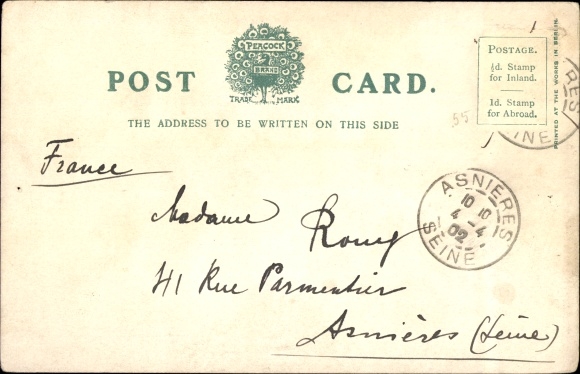 PEACOCK
BRAND
TRADE MARK
POST CARD.
THE ADDRESS TO BE WRITTEN ON THIS SIDE
POSTAGE.
½d. Stamp
for Inland.
1d. Stamp
for Abroad.
PRINTED AT THE WORKS IN BERLIN.
RES
SEINE
55
France
ASNIÈRES
10 10
4 -4
02
SEINE
Madame Romy
41 Rue Parmentier
Asnières (Seine)